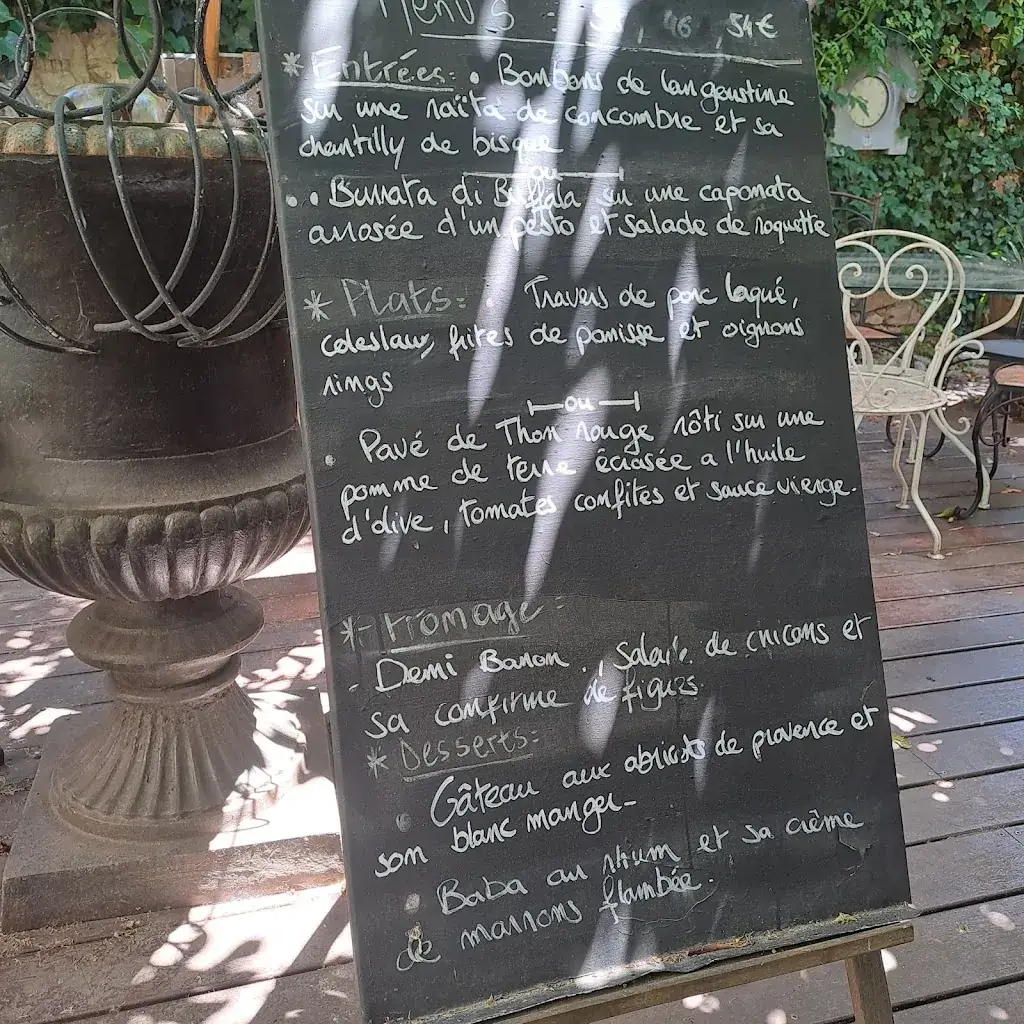 Menus = , 46, 54€
* Entrées: • Bonbons de langoustine
sur une raïta de concombre et sa
chantilly de bisque
ou
• • Burrata di Buffala sur une caponata
arrosée d'un pesto et salade de roquette
* Plats: • Travers de porc laqué,
coleslaw, frites de panisse et oignons
rings
ou
• Pavé de Thon rouge rôti sur une
pomme de terre écrasée a l'huile
d'olive, tomates confites et sauce vierge.
* Fromage:
- Demi Banon. , Salade de chicons et
sa confiture de figues.
* Desserts:
• Gâteau aux abricots de provence et
son blanc manger-
• Baba au rhum et sa crème
de marrons flambée.